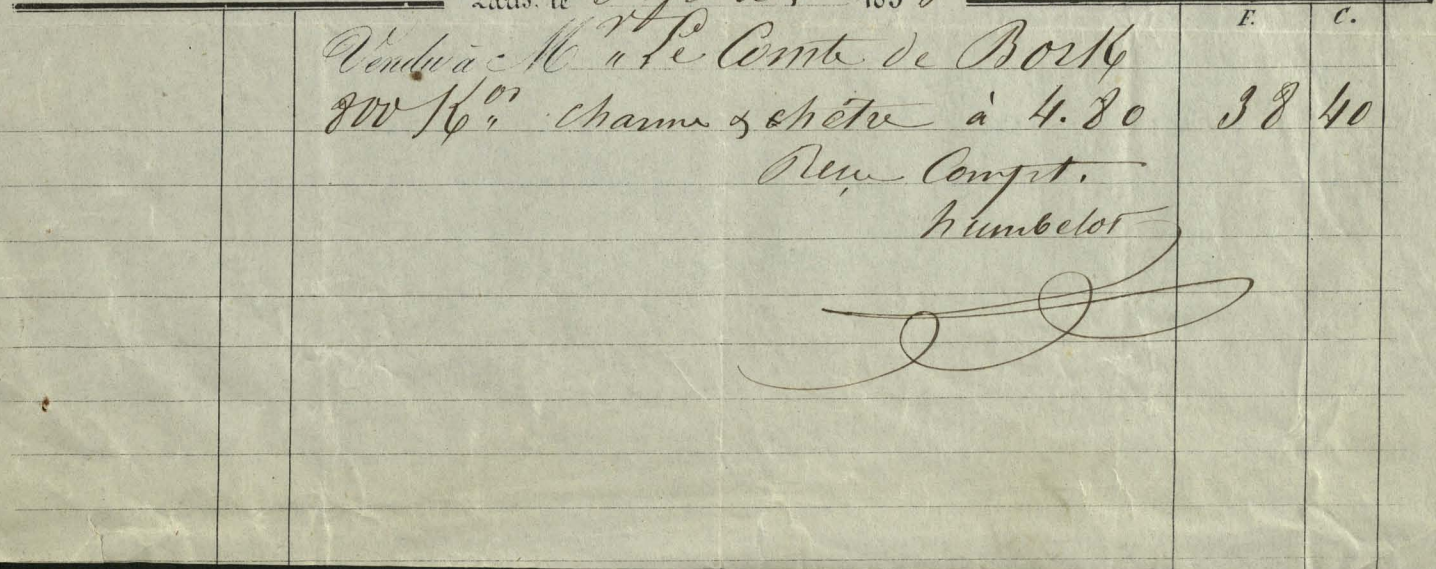 Paris, le 185
F. C.
Vendu à Mr. Le Comte de Bork
800 Kos. Charme & chêtre à 4.80 38 40
Reçu Compt.
humbelot